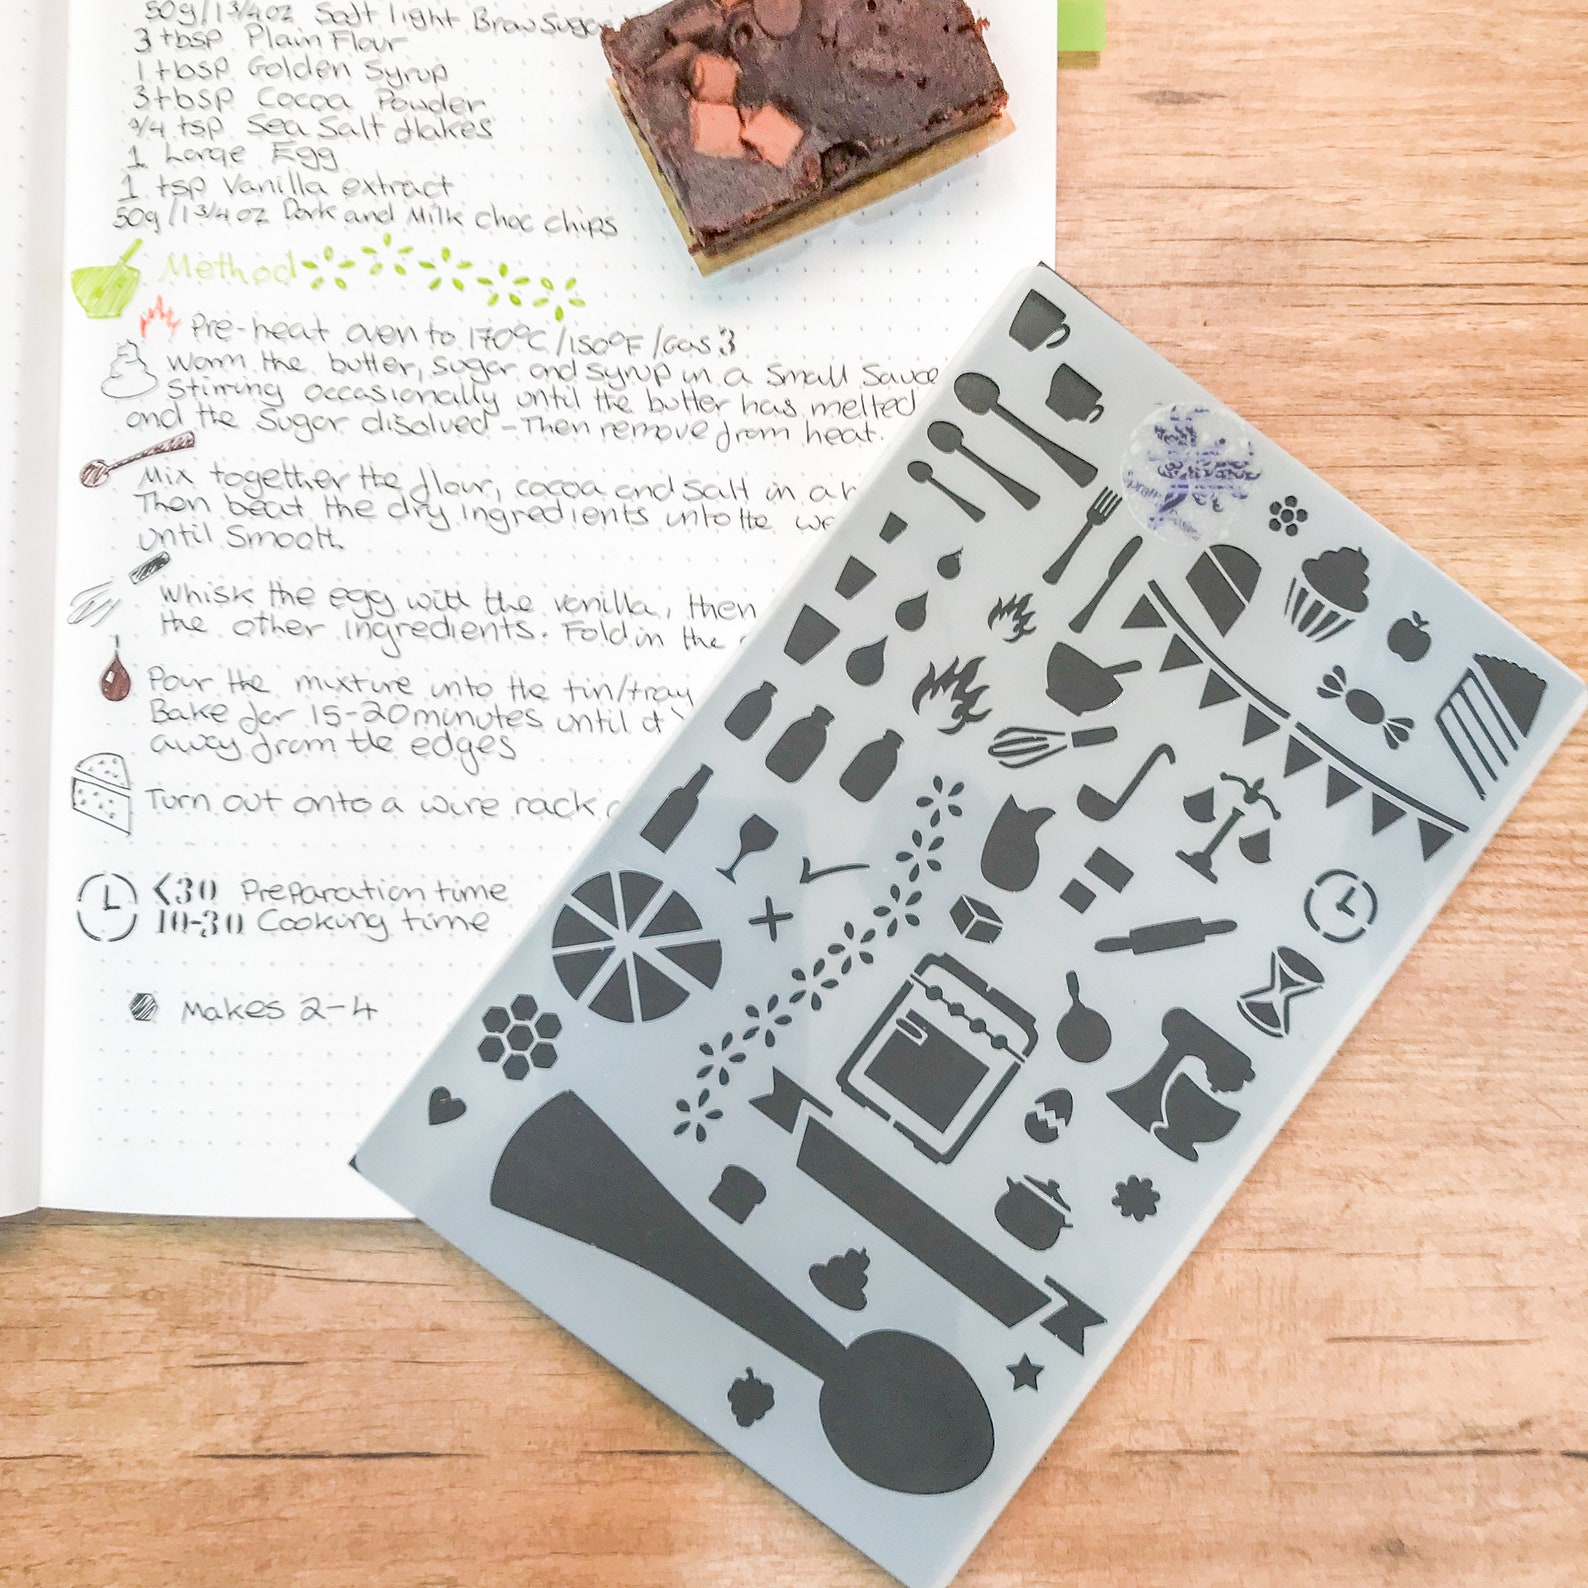 50g/1 3/4oz Soft light Brow Suga
3 tbsp Plain Flour
1 tbsp Golden Syrup
3 tbsp Cocoa Powder
3/4 tsp Sea Salt flakes
1 Large Egg
1 tsp Vanilla extract
50g/1 3/4 oz Dark and Milk choc chips
Method
Pre-heat oven to 170°C/150°F/Gas 3
Warm the butter, sugar and syrup in a Small Sauce
Stirring occasionally until the butter has melted
and the Sugar disolved - Then remove from heat.
Mix together the flour, cocoa and salt in a
Then beat the dry ingredients into the we
until Smooth.
Whisk the egg with the vanilla, then
the other ingredients. Fold in the
Pour the mixture into the tin/tray
Bake for 15-20 minutes until it
away from the edges
Turn out onto a wire rack
<30 Preparation time
10-30 Cooking time
Makes 2-4